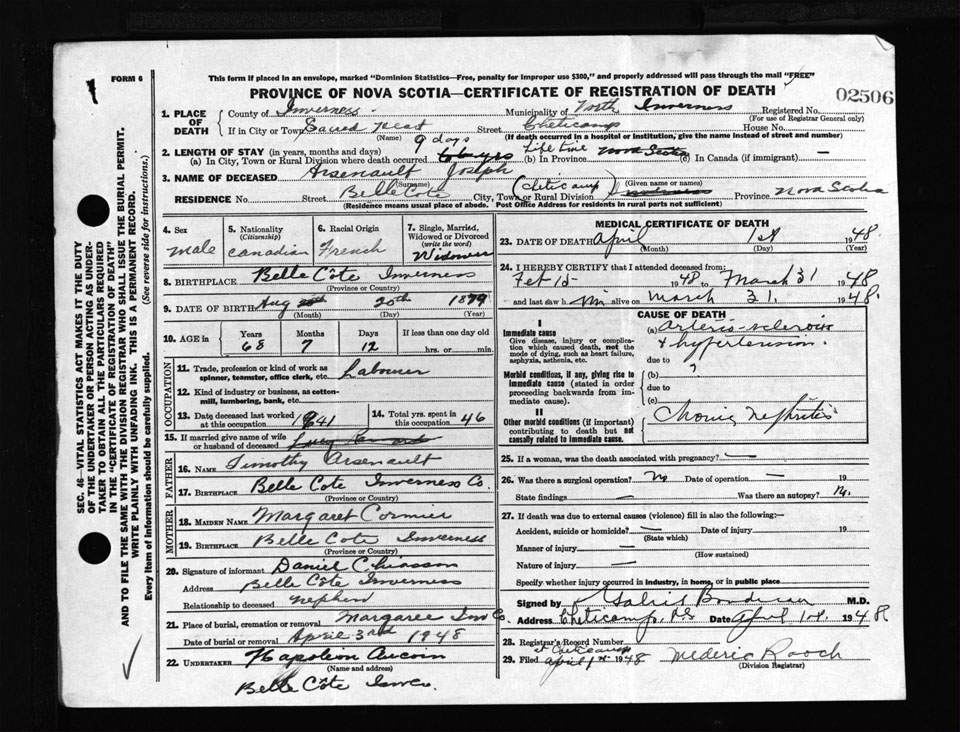 FORM 6
This form if placed in an envelope, marked "Dominion Statistics—Free, penalty for improper use $300," and properly addressed will pass through the mail "FREE"
PROVINCE OF NOVA SCOTIA—CERTIFICATE OF REGISTRATION OF DEATH
02506
1. PLACE OF DEATH County of Inverness Municipality of North Inverness Registered No.
(For use of Registrar General only)
If in City or Town Sacred Heart Street Cheticamp House No.
(Name) (If death occurred in a hospital or institution, give its name instead of street and number)
2. LENGTH OF STAY (in years, months and days) 9 days Life time
(a) In City, Town or Rural Division where death occurred (b) In Province Nova Scotia (c) In Canada (if immigrant) —
3. NAME OF DECEASED Arsenault Joseph
(Surname) (Given name or names)
RESIDENCE No. Street Belle Cote City, Town or Rural Division (Cheticamp) Inverness Province Nova Scotia
(Residence means usual place of abode. Post Office Address for residents in rural parts not sufficient)
4. Sex male
5. Nationality (Citizenship) Canadian
6. Racial Origin French
7. Single, Married, Widowed or Divorced (write the word) Widower
8. BIRTHPLACE Belle Côte Inverness
(Province or Country)
9. DATE OF BIRTH Aug 20th 1879
(Month) (Day) (Year)
10. AGE in Years 68 Months 7 Days 12 If less than one day old hrs. or min.
OCCUPATION
11. Trade, profession or kind of work as spinner, teamster, office clerk, etc. Labourer
12. Kind of industry or business, as cotton-mill, lumbering, bank, etc.
13. Date deceased last worked at this occupation 1941
14. Total yrs. spent in this occupation 46
15. If married give name of wife or husband of deceased Lucy
FATHER
16. NAME Timothy Arsenault
17. BIRTHPLACE Belle Cote Inverness Co.
(Province or Country)
MOTHER
18. MAIDEN NAME Margaret Cormier
19. BIRTHPLACE Belle Cote Inverness
(Province or Country)
20. Signature of informant Daniel Chiasson
Address Belle Côte Inverness
Relationship to deceased nephew
21. Place of burial, cremation or removal Margaree Inv Co.
Date of burial or removal April 3rd 1948
22. UNDERTAKER Napoleon Aucoin
(Name and address)
Belle Côte Inv Co.
MEDICAL CERTIFICATE OF DEATH
23. DATE OF DEATH April 1st 1948
(Month) (Day) (Year)
24. I HEREBY CERTIFY that I attended deceased from:
Feb 15 1948 to March 31 1948
and last saw him alive on March 31. 1948.
CAUSE OF DEATH
I
Immediate cause
Give disease, injury or complication which caused death, not the mode of dying, such as heart failure, asphyxia, asthenia, etc.
(a) Arterio-sclerosis
+ hypertension.
due to
Morbid conditions, if any, giving rise to immediate cause (stated in order proceeding backwards from immediate cause).
(b) ?
due to
(c)
II
Other morbid conditions (if important) contributing to death but not causally related to immediate cause.
Chronic Nephritis
25. If a woman, was the death associated with pregnancy? —
26. Was there a surgical operation? No Date of operation — 19
State findings — Was there an autopsy? No.
27. If death was due to external causes (violence) fill in also the following:—
Accident, suicide or homicide? — Date of injury 19
(State which)
Manner of injury —
(How sustained)
Nature of injury —
Specify whether injury occurred in industry, in home, or in public place
Signed by Gabriel Boudreau M.D.
Address Cheticamp, NS Date April 1st. 1948
28. Registrar's Record Number
at Cheticamp
29. Filed April 1st 1948 Mederic Roach
(Division Registrar)
SEC. 46—VITAL STATISTICS ACT MAKES IT THE DUTY
OF THE UNDERTAKER OR PERSON ACTING AS UNDER-
TAKER TO OBTAIN ALL THE PARTICULARS REQUIRED
IN THE "CERTIFICATE OF REGISTRATION OF DEATH"
AND TO FILE THE SAME WITH THE DIVISION REGISTRAR WHO SHALL ISSUE THE BURIAL PERMIT.
WRITE PLAINLY WITH UNFADING INK. THIS IS A PERMANENT RECORD.
Every item of information should be carefully supplied. (See reverse side for instructions.)